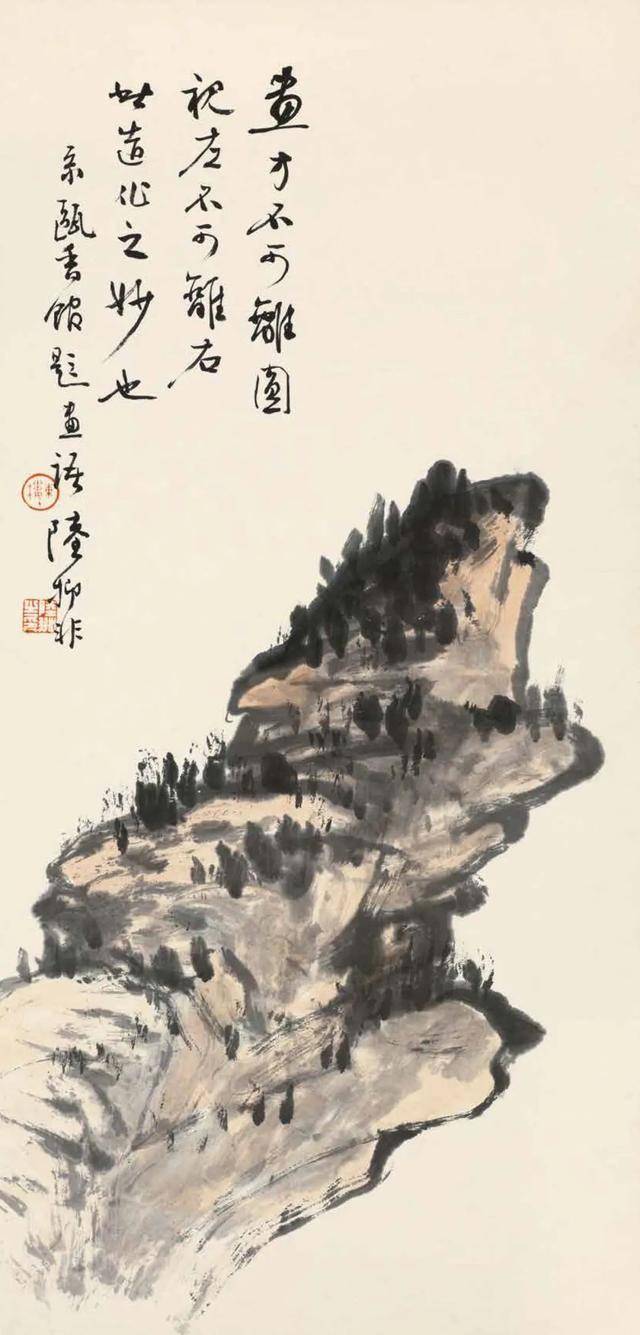 畫方不可離圓
視左不可離右
此造化之妙也
录甌香館題畫語 陸抑非